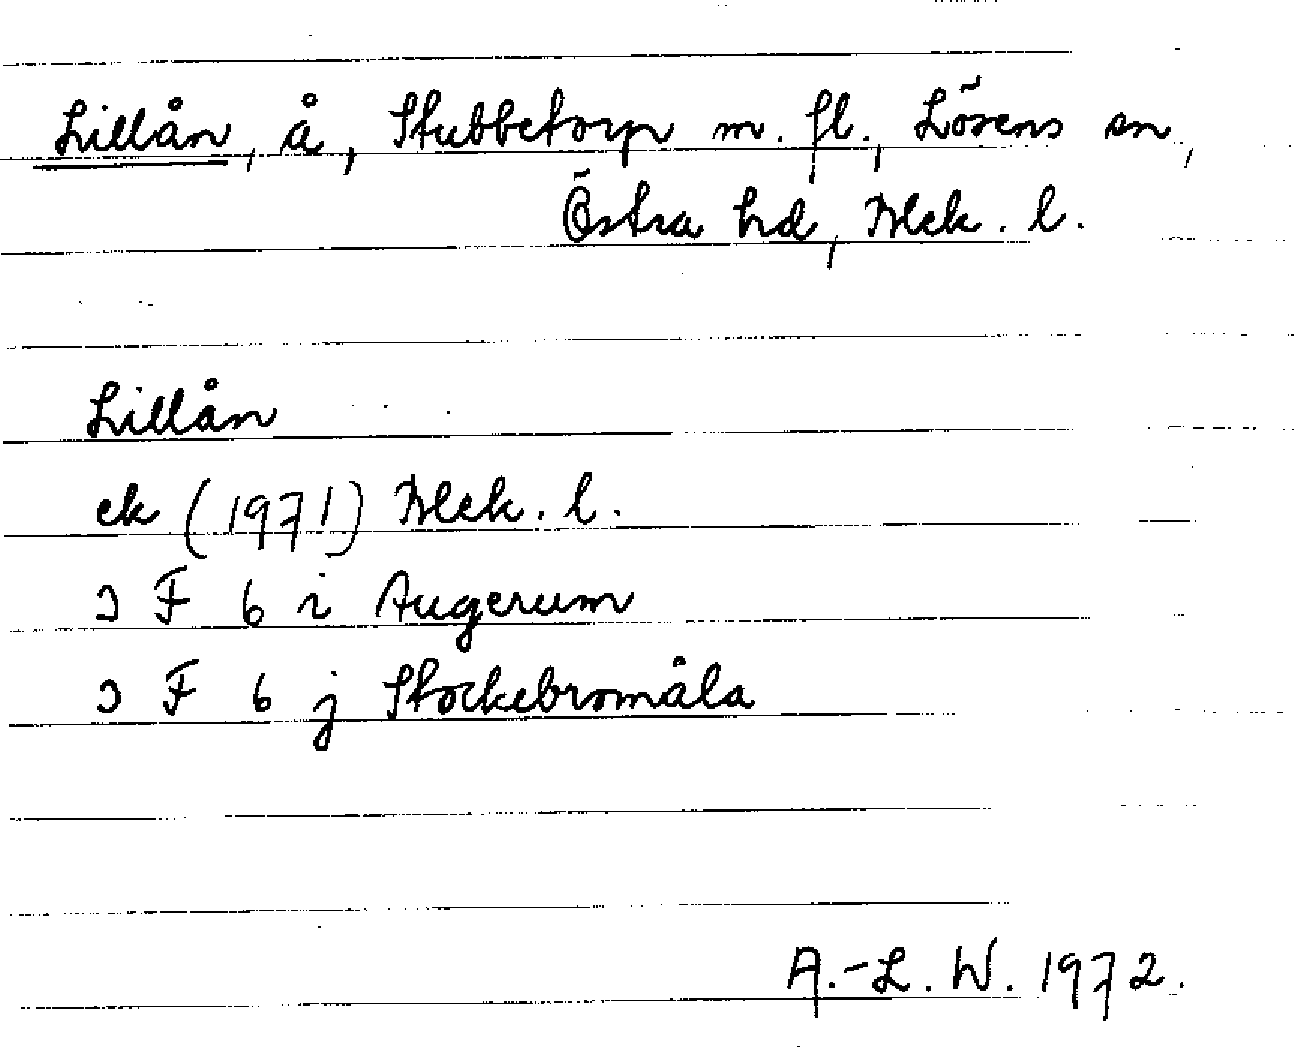 Lillån, å, Stubbetorp m. fl., Lösens sn,
Östra hd, Blek. l.
Lillån
ek (1971) Blek. l.
3 F 6 i Augerum
3 F 6 j Stockebromåla
A.-L. W. 1972.